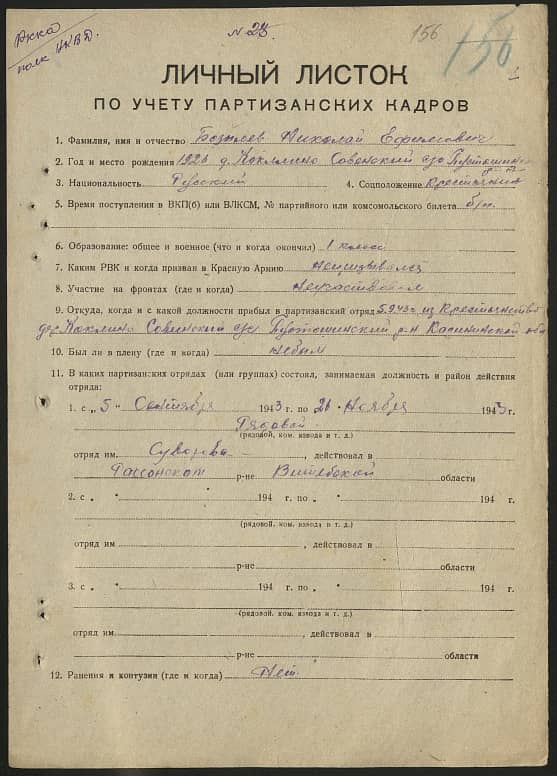 РККА
полк НКВД.
N 28
156
156
ЛИЧНЫЙ ЛИСТОК
ПО УЧЕТУ ПАРТИЗАНСКИХ КАДРОВ
1. Фамилия, имя и отчество Николай Ефимович
2. Год и место рождения 1926 д. Коклино Совенский с/с
3. Национальность Русский 4. Соцположение Крестьянин
5. Время поступления в ВКП(б) или ВЛКСМ, № партийного или комсомольского билета б/п
6. Образование: общее и военное (что и когда окончил) 1 класс
7. Каким РВК и когда призван в Красную Армию Непризывался
8. Участие на фронтах (где и когда) Неучаствовал
9. Откуда, когда и с какой должности прибыл в партизанский отряд 5.9.43г. из Крестьянства
дер. Коклино Совенский с/с р-н Калининской обл
10. Был ли в плену (где и когда) небыл
11. В каких партизанских отрядах (или группах) состоял, занимаемая должность и район действия
отряда:
1. с „ 5 " Сентября 1943 г. по „ 26 " Ноября 1943 г.
Рядовой
(рядовой, ком. взвода и т. д.)
отряд им. Суворова, действовал в
Россонском р-не Витебской области
2. с „ " 194 г. по „ " 194 г.
(рядовой, ком. взвода и т. д.)
отряд им. , действовал в
р-не области
3. с „ " 194 г. по „ " 194 г.
(рядовой, ком. взвода и т. д.)
отряд им. , действовал в
р-не области
12. Ранения и контузии (где и когда) Нет